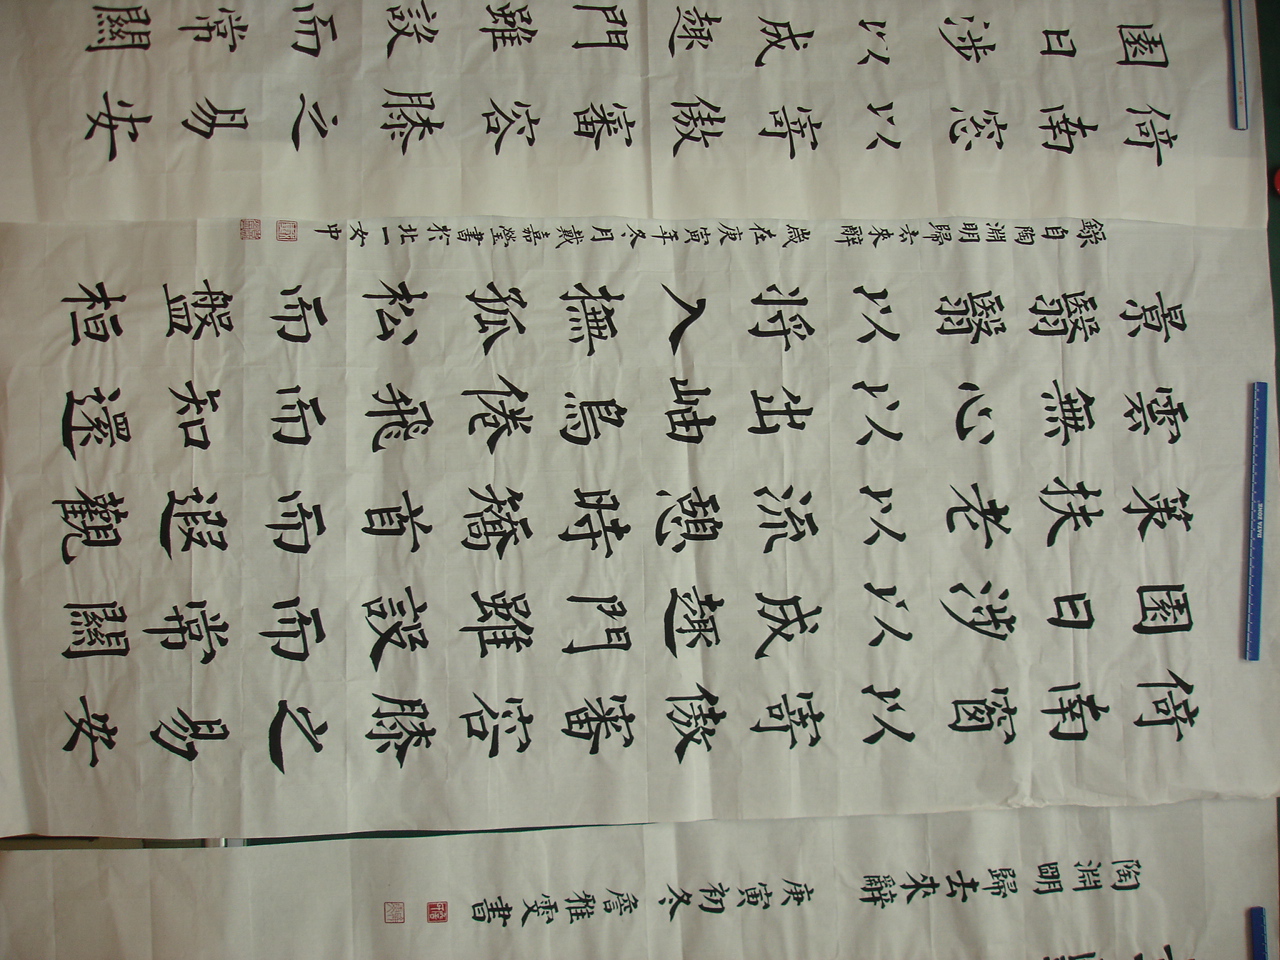 陶淵明歸去來辭 庚寅初冬 詹雅雯書
倚南窗以寄傲審容膝之易安
園日涉以成趣門雖設而常關
策扶老以流憩時矯首而遐觀
雲無心以出岫鳥倦飛而知還
景翳翳以將入撫孤松而盤桓
錄自陶淵明歸去來辭 歲在庚寅年冬月戴嘉瑩書於北一女中
倚南窓以寄傲審容膝之易安
園日涉以成趣門雖設而常關